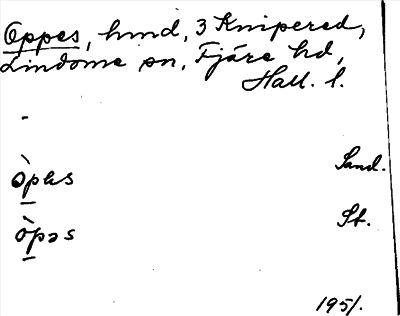 Oppes, hmd, 3 Knipered,
Lindome sn, Fjäre hd,
Hall. l.
òpɩs Sand.
òpəs St.
1951.